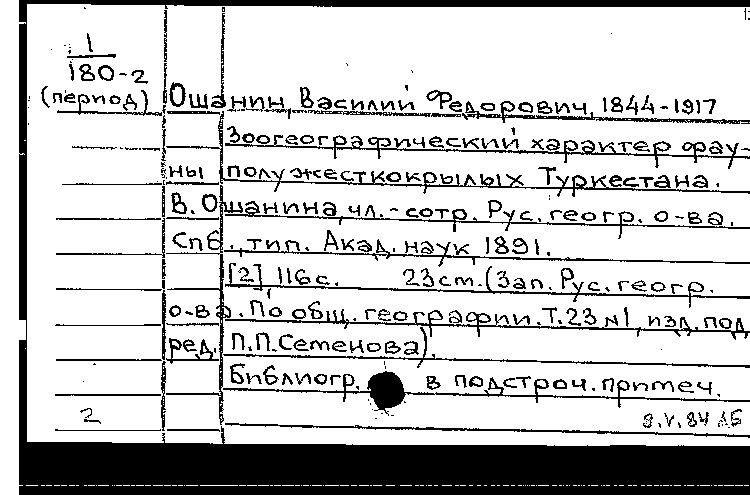 1
180-2
(период) Ошанин, Василий Федорович, 1844-1917
Зоогеографический характер фау-
ны полужесткокрылых Туркестана.
В. Ошанина, чл.-сотр. Рус. геогр. о-ва.
Спб., тип. Акад. наук, 1891.
[2], 116 с. 23 см. (Зап. Рус. геогр.
о-ва. По общ. географии. Т. 23 №1, изд. под
ред. П.П.Семенова).
Библиогр. в подстроч. примеч.
2
9.V.84